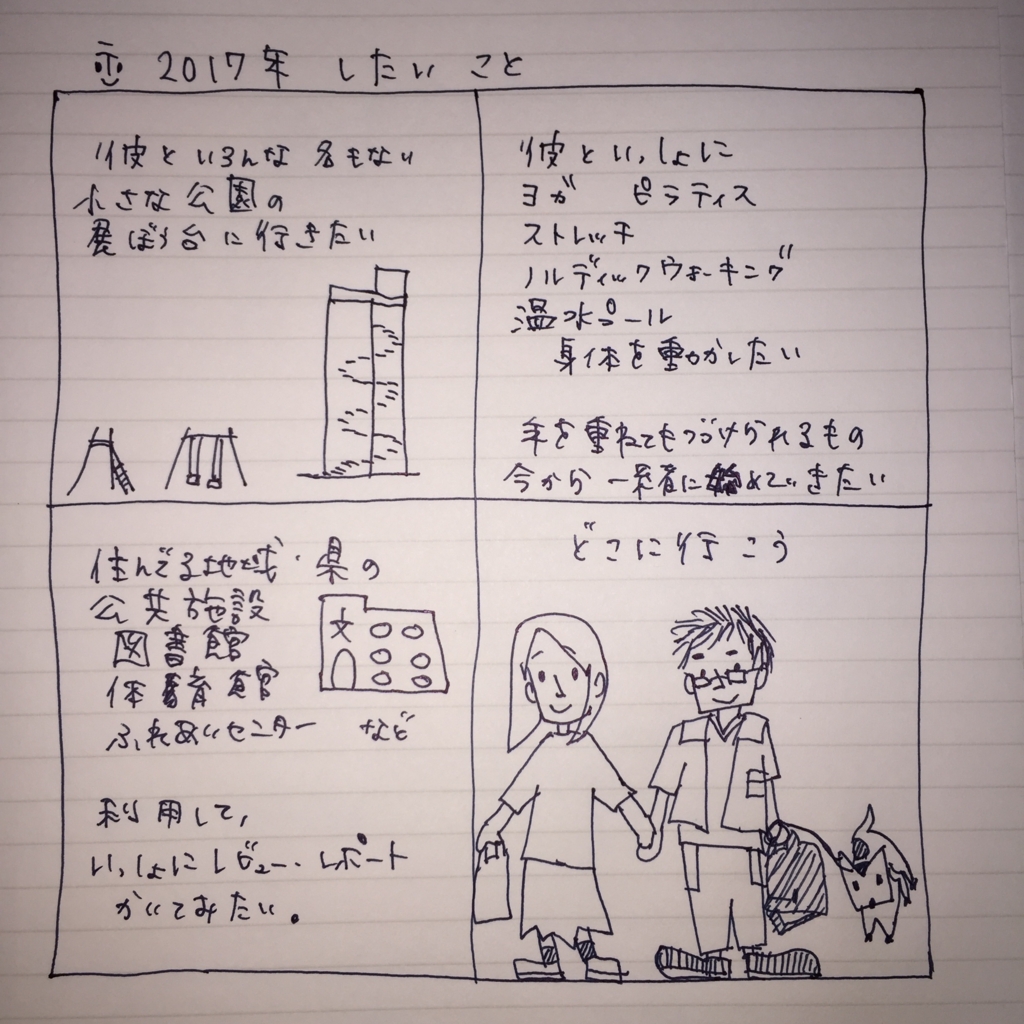 2017年 したいこと
彼といろんな名もない
小さな公園の
展ぼう台に行きたい
彼といっしょに
ヨガ ピラティス
ストレッチ
ノルディックウォーキング
温水プール
身体を動かしたい
年を重ねてもつづけられるもの
今から一緒に始めていきたい
住んでる地域・県の
公共施設
図書館
体育館
ふれあいセンター など
文
利用して、
いっしょにレビュー・レポート
かいてみたい。
どこに行こう